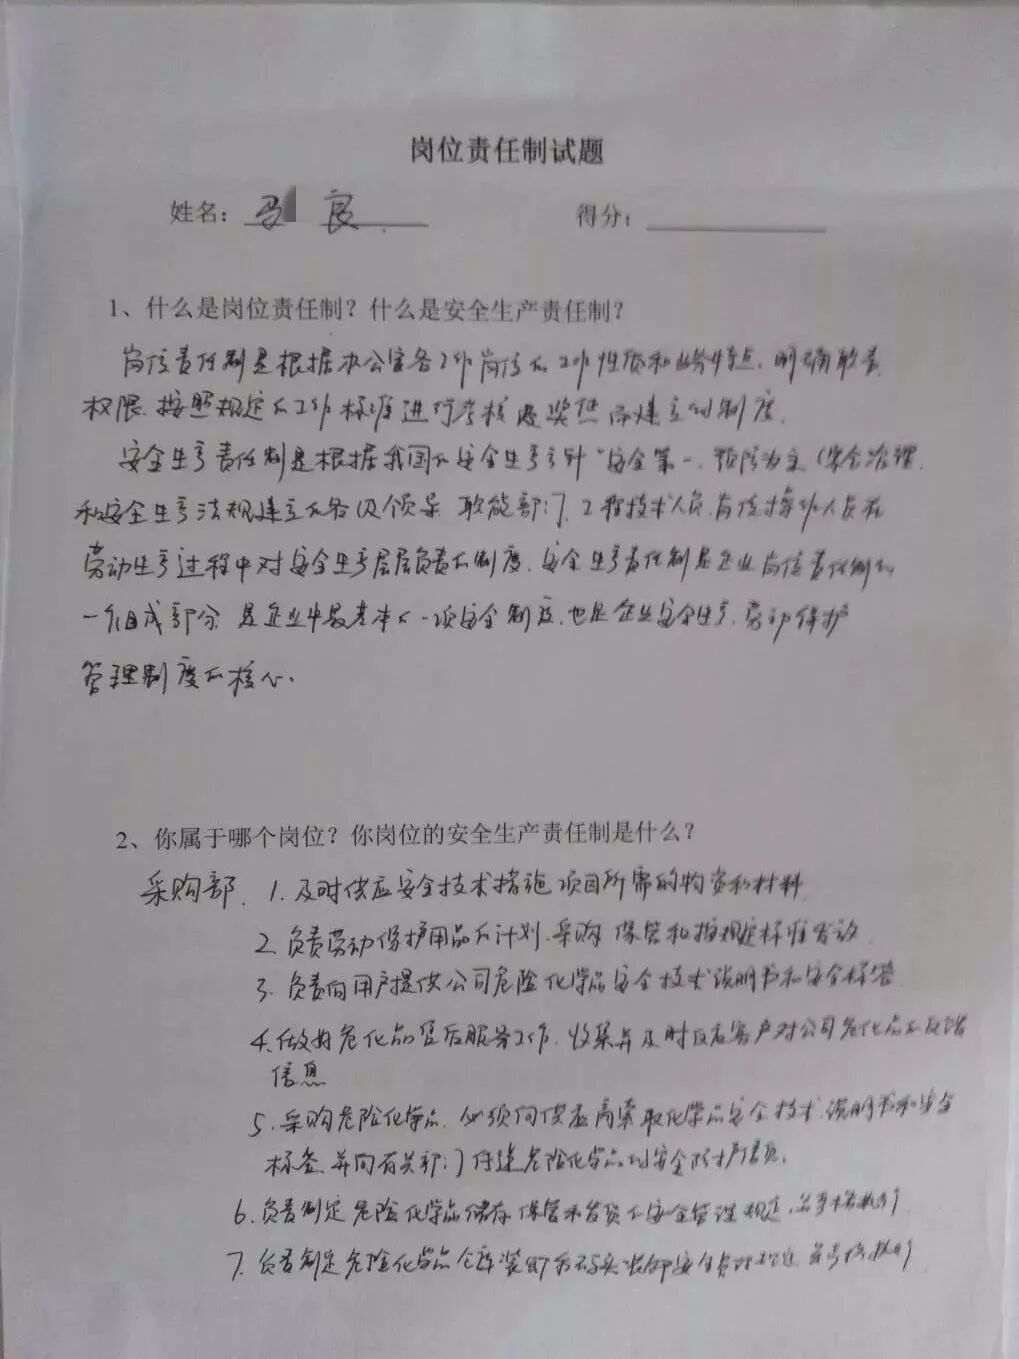 岗位责任制试题
姓名：马 良 得分：
1、什么是岗位责任制？什么是安全生产责任制？
岗位责任制是根据办公室各工作岗位的工作性质和业务特点，明确职责
权限，按照规定的工作标准进行考核及奖惩而建立的制度。
安全生产责任制是根据我国的安全生产方针“安全第一，预防为主，综合治理
和安全生产法规建立的各级领导，职能部门，工程技术人员，岗位操作人员在
劳动生产过程中对安全生产层层负责的制度。安全生产责任制是企业岗位责任制的
一个组成部分，是企业中最基本的一项安全制度，也是企业安全生产，劳动保护
管理制度的核心。
2、你属于哪个岗位？你岗位的安全生产责任制是什么？
采购部. 1. 及时供应安全技术措施项目所需的物资和材料
2. 负责劳动保护用品的计划、采购、保管和按规定标准发放
3. 负责向用户提供公司危险化学品安全技术说明书和安全标签
4. 做好危化品售后服务工作，收集并及时反应客户对公司危化品的反馈
信息
5. 采购危险化学品，必须向供应商索取化学品安全技术说明书和安全
标签，并向有关部门传递危险化学品的安全防护信息.
6. 负责制定危险化学品储存、保管和发货的安全管理规定，并严格执行
7. 负责制定危险化学品仓库装卸和码头装卸安全管理规定，并严格执行